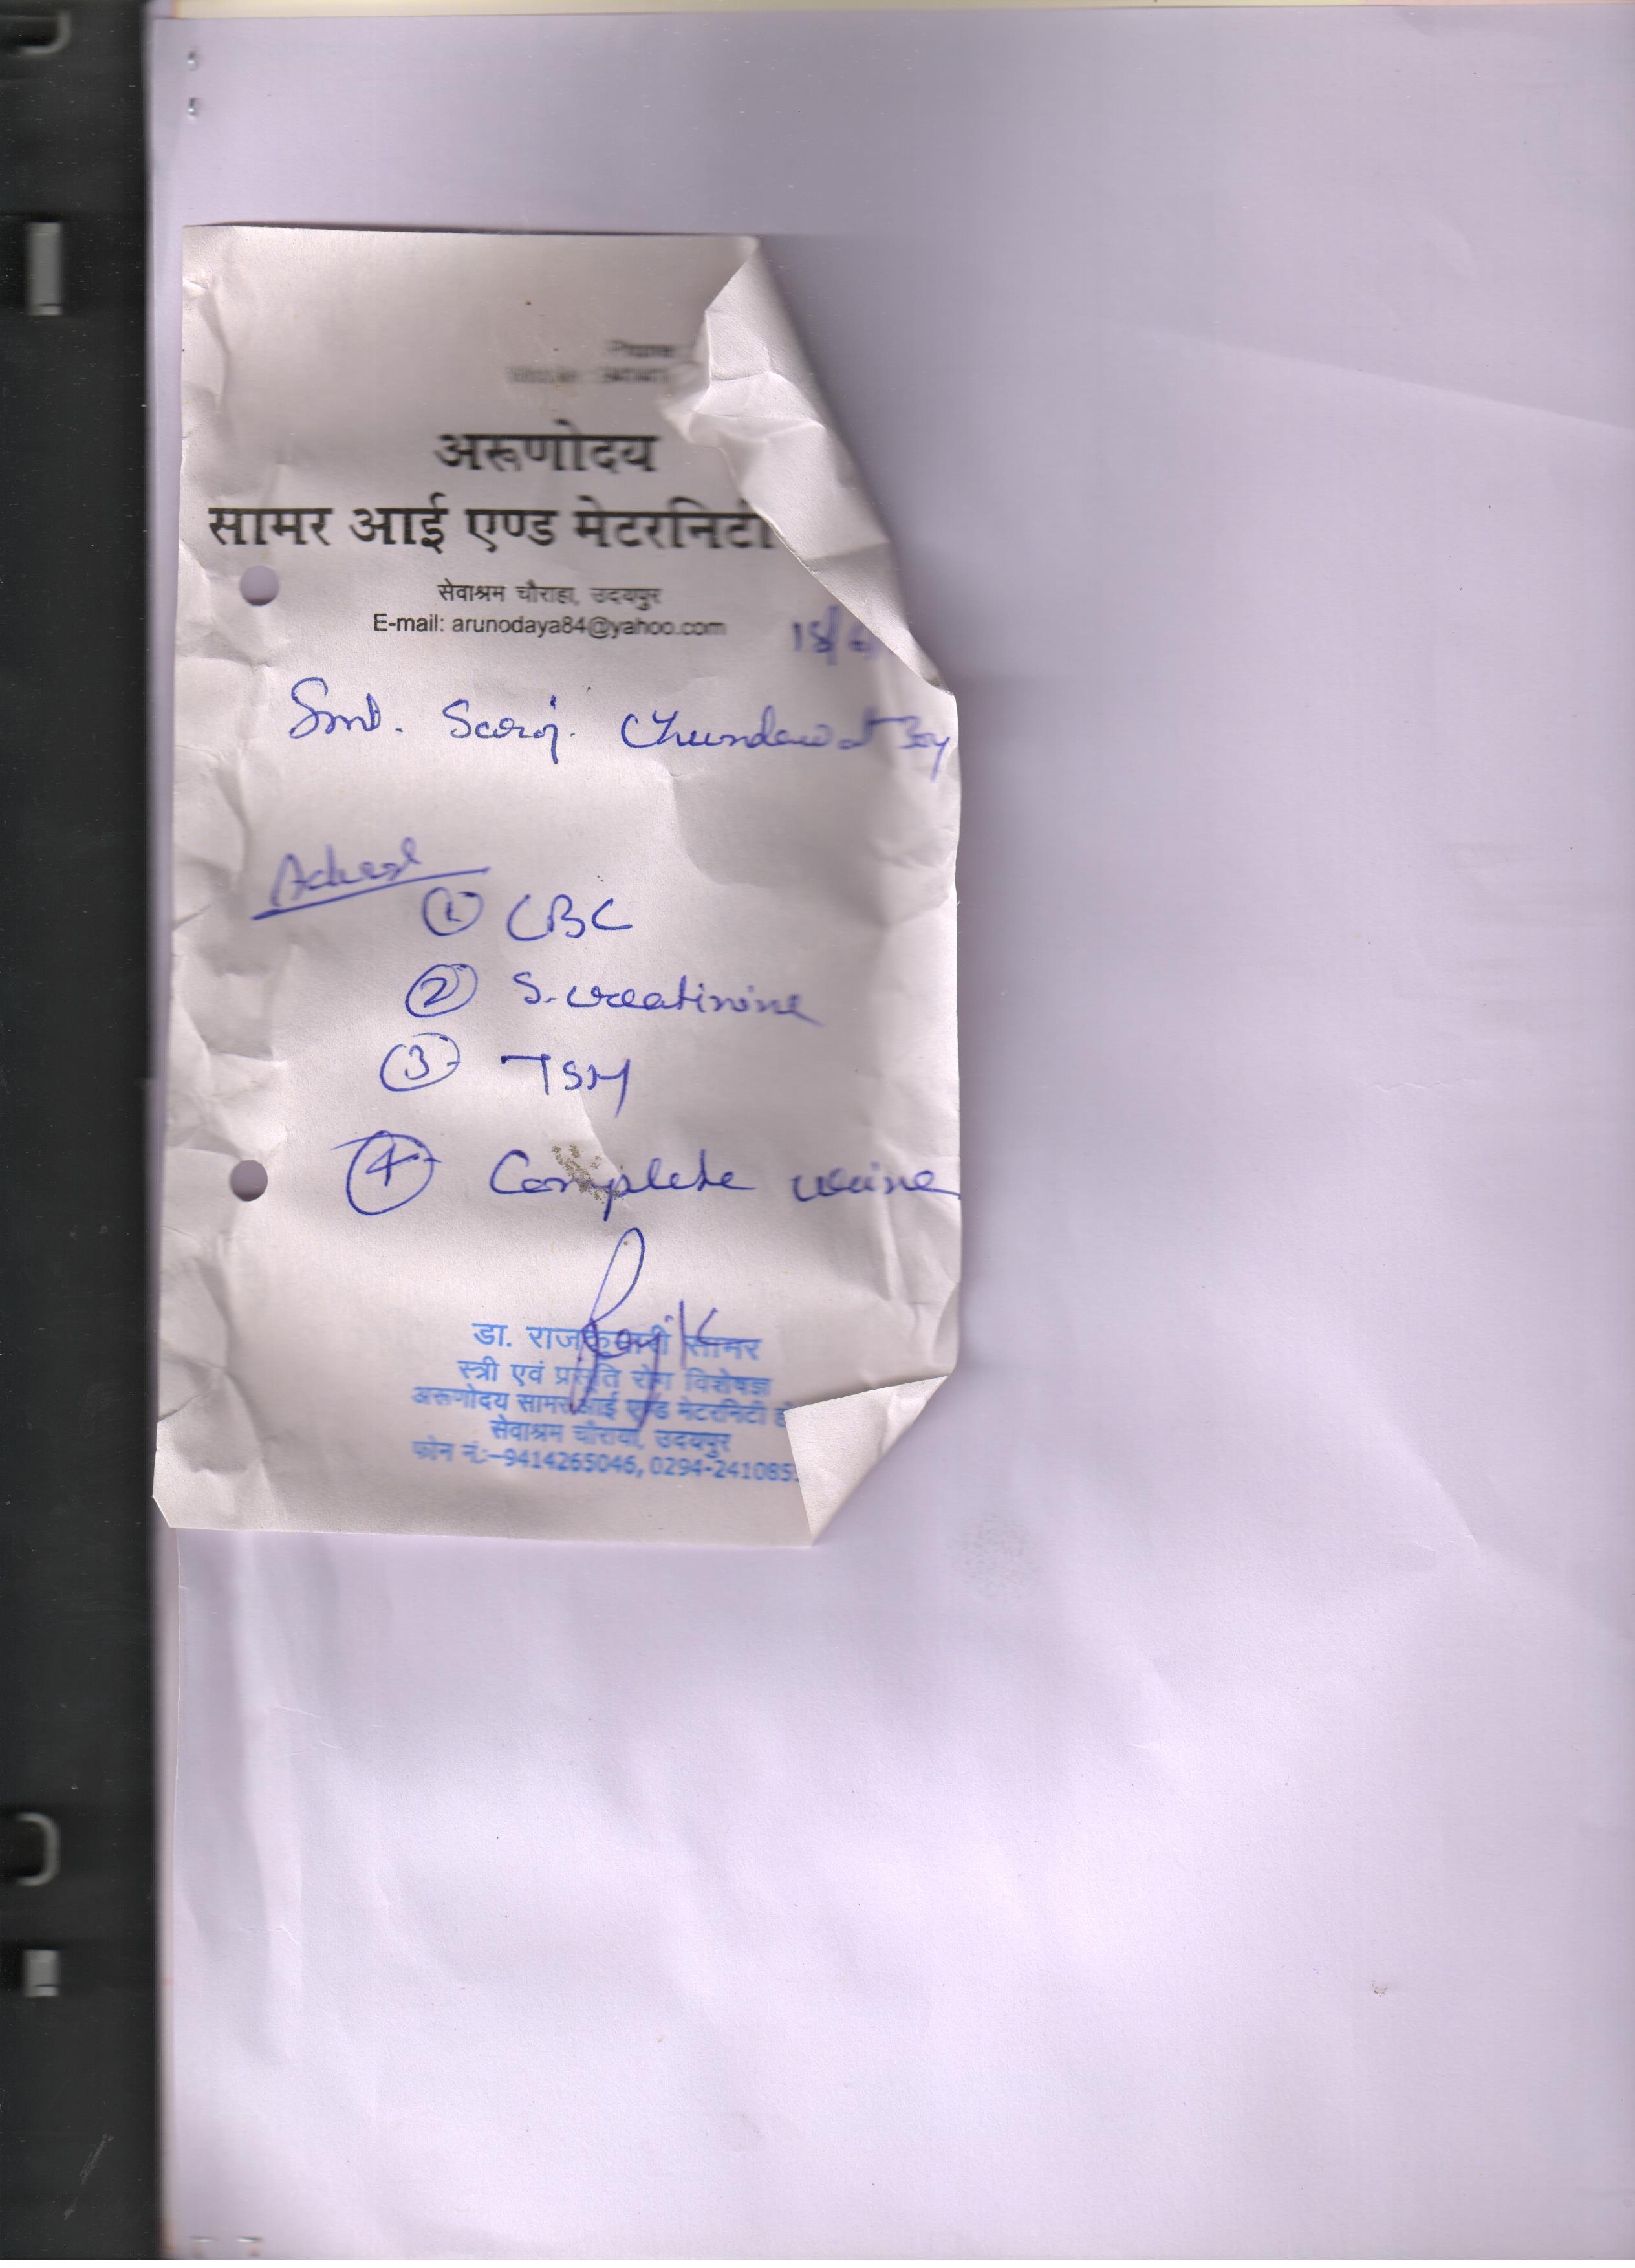 अरूणोदय
सामर आई एण्ड मेटरनिटी
सेवाश्रम चौराहा, उदयपुर
E-mail: arunodaya84@yahoo.com
18/6
Smt. Saroj. Chundawat 30y
Advised
① CBC
② S. creatinine
③ TSH
④ Complete urine
डा. राजकुमारी सामर
स्त्री एवं प्रसूति रोग विशेषज्ञ
अरूणोदय सामर आई एण्ड मेटरनिटी
सेवाश्रम चौराया, उदयपुर
फोन नं.:–9414265046, 0294-241085